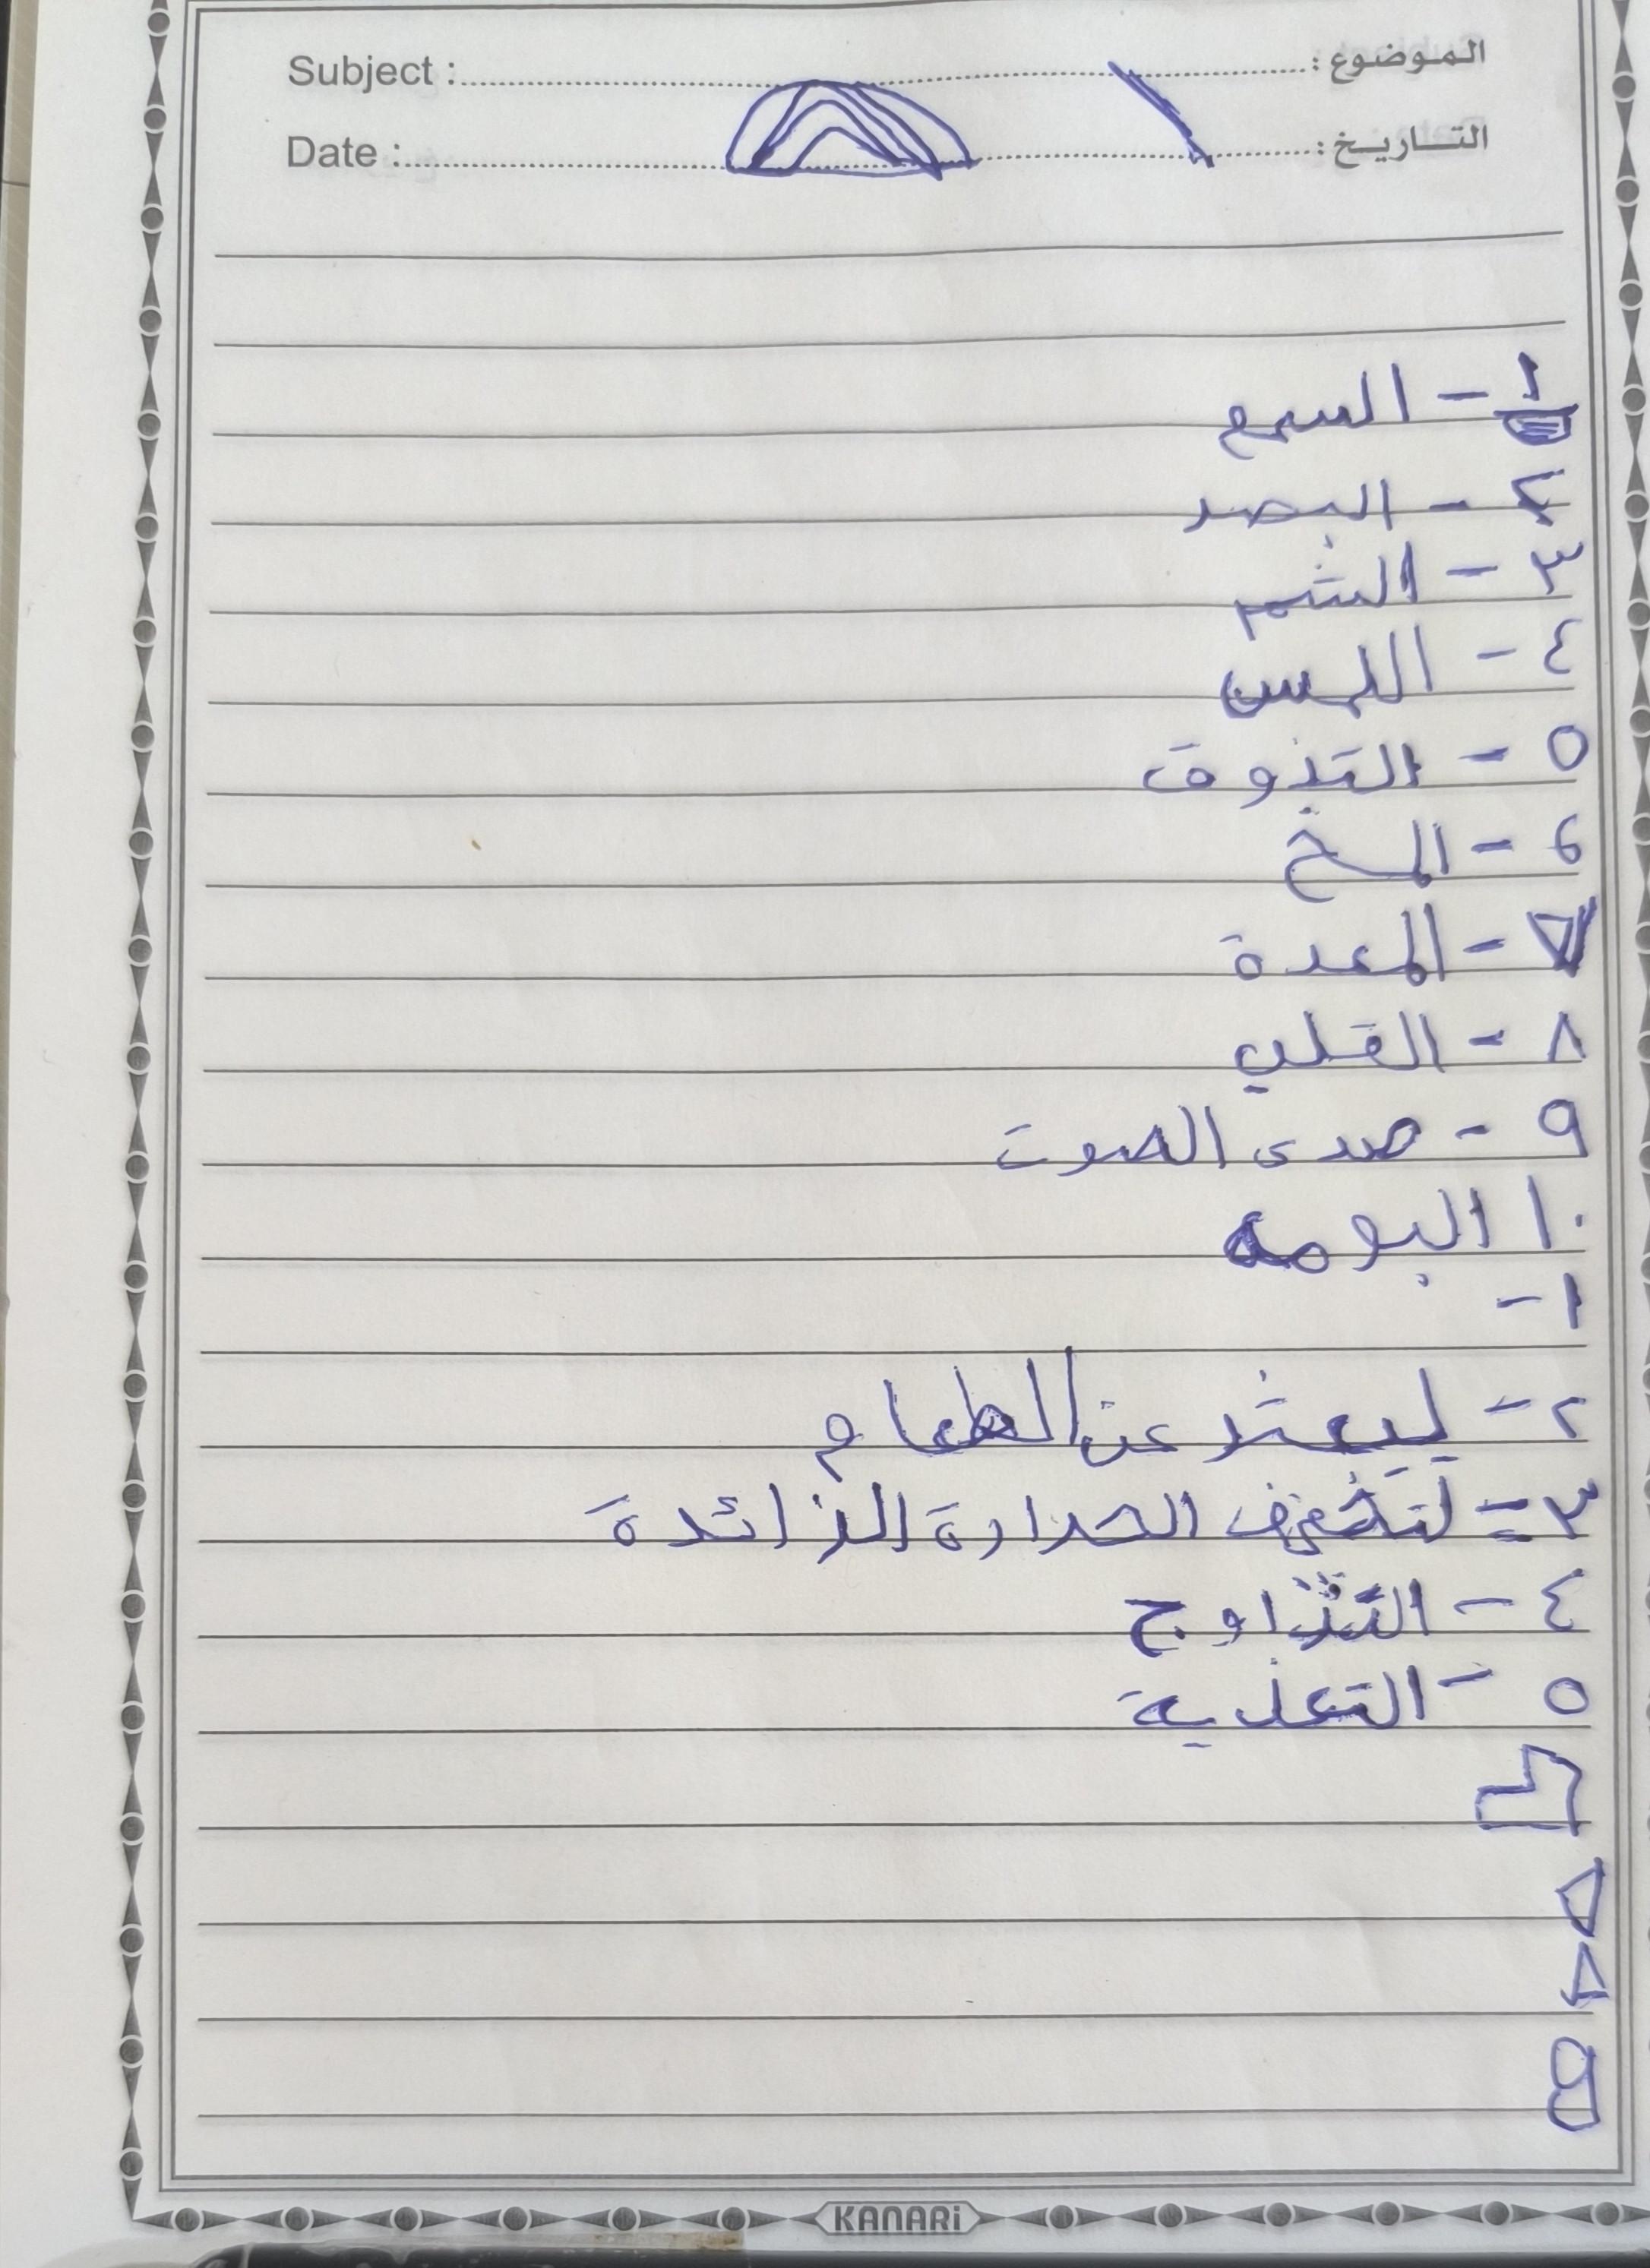 Subject : الموضوع :
Date : التاريخ :
١ - السمع
٢ - البصر
٣ - الشم
٤ - اللمس
٥ - التذوق
٦ - المخ
٧ - المعدة
٨ - القلب
٩ - صدى الصوت
١٠ البومه
١ -
٢ - ليبعثر عن الطعام
٣ - لتخفيف الحرارة الزائدة
٤ - التزاوج
٥ - التعذية
٦
٧
٨
٩
KANARi